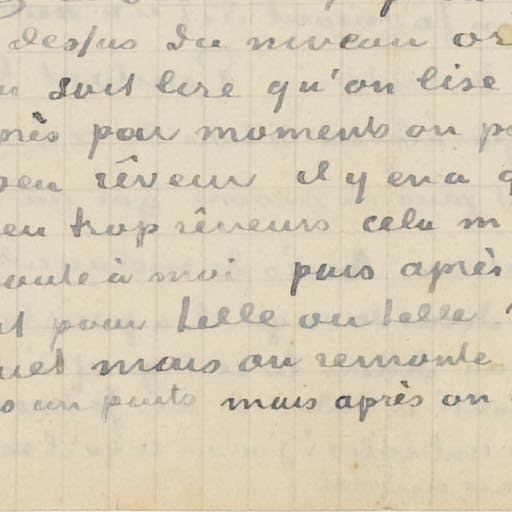 dessus du niveau or
soit lire qu'on lise
près par moments on p
peu rêveur il y en a q
peu trop rêveurs cela m
oute à moi puis après
t pour telle ou telle
uet mais on remonte
s un puits mais après on